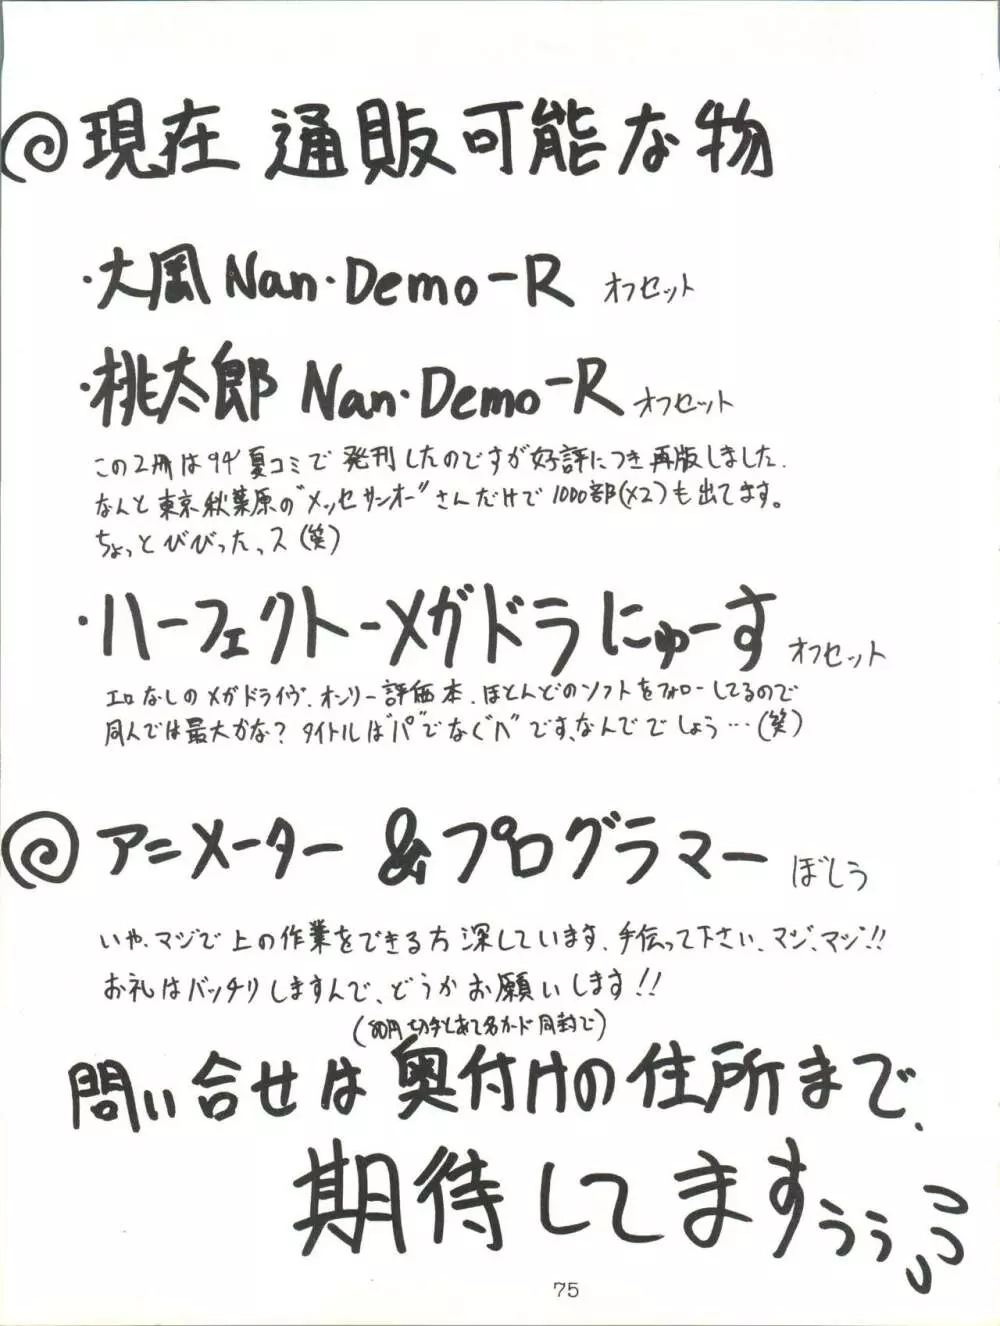 現在 通販可能な物
・大凮 Nan・Demo-R オフセット
・桃太郎 Nan・Demo-R オフセット
この2冊は94'夏コミで発刊したのですが好評につき再版しました.
なんと東京秋葉原の"メッセサンオー"さんだけで1000部(×2)も出てます。
ちょっとびびったっス(笑)
・ハーフェクトーメガドラにゅーす オフセット
エロなしのメガドライヴ.オンリー評価本.ほとんどのソフトをフォローしてるので
同人では最大かな? タイトルは"パ"でなく"ハ"です、なんででしょう…(笑)
アニメーター&プログラマー ぼしう
いや、マジで上の作業をできる方深しています、手伝って下さい、マジ、マジ!!
お礼はバッチリしますんで、どうかお願いします!!
(80円切手とあて名カード同封で)
問い合せは奥付けの住所まで、
期待してますぅぅっっっ
75